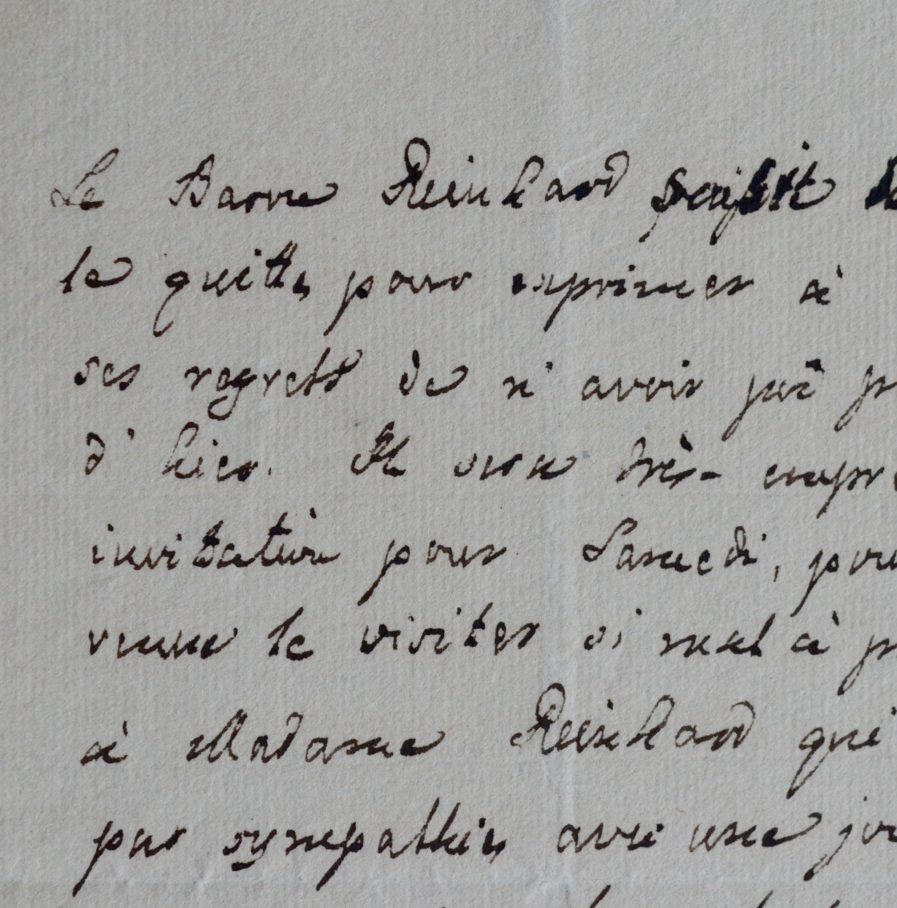 Le Baron Reinhard
le quitte pour exprimer à
ses regrets de n'avoir pu
d'hier. Il très-
invitation pour Samedi,
le visiter si mal à
à Madame Reinhard qui
par sympathie avec une